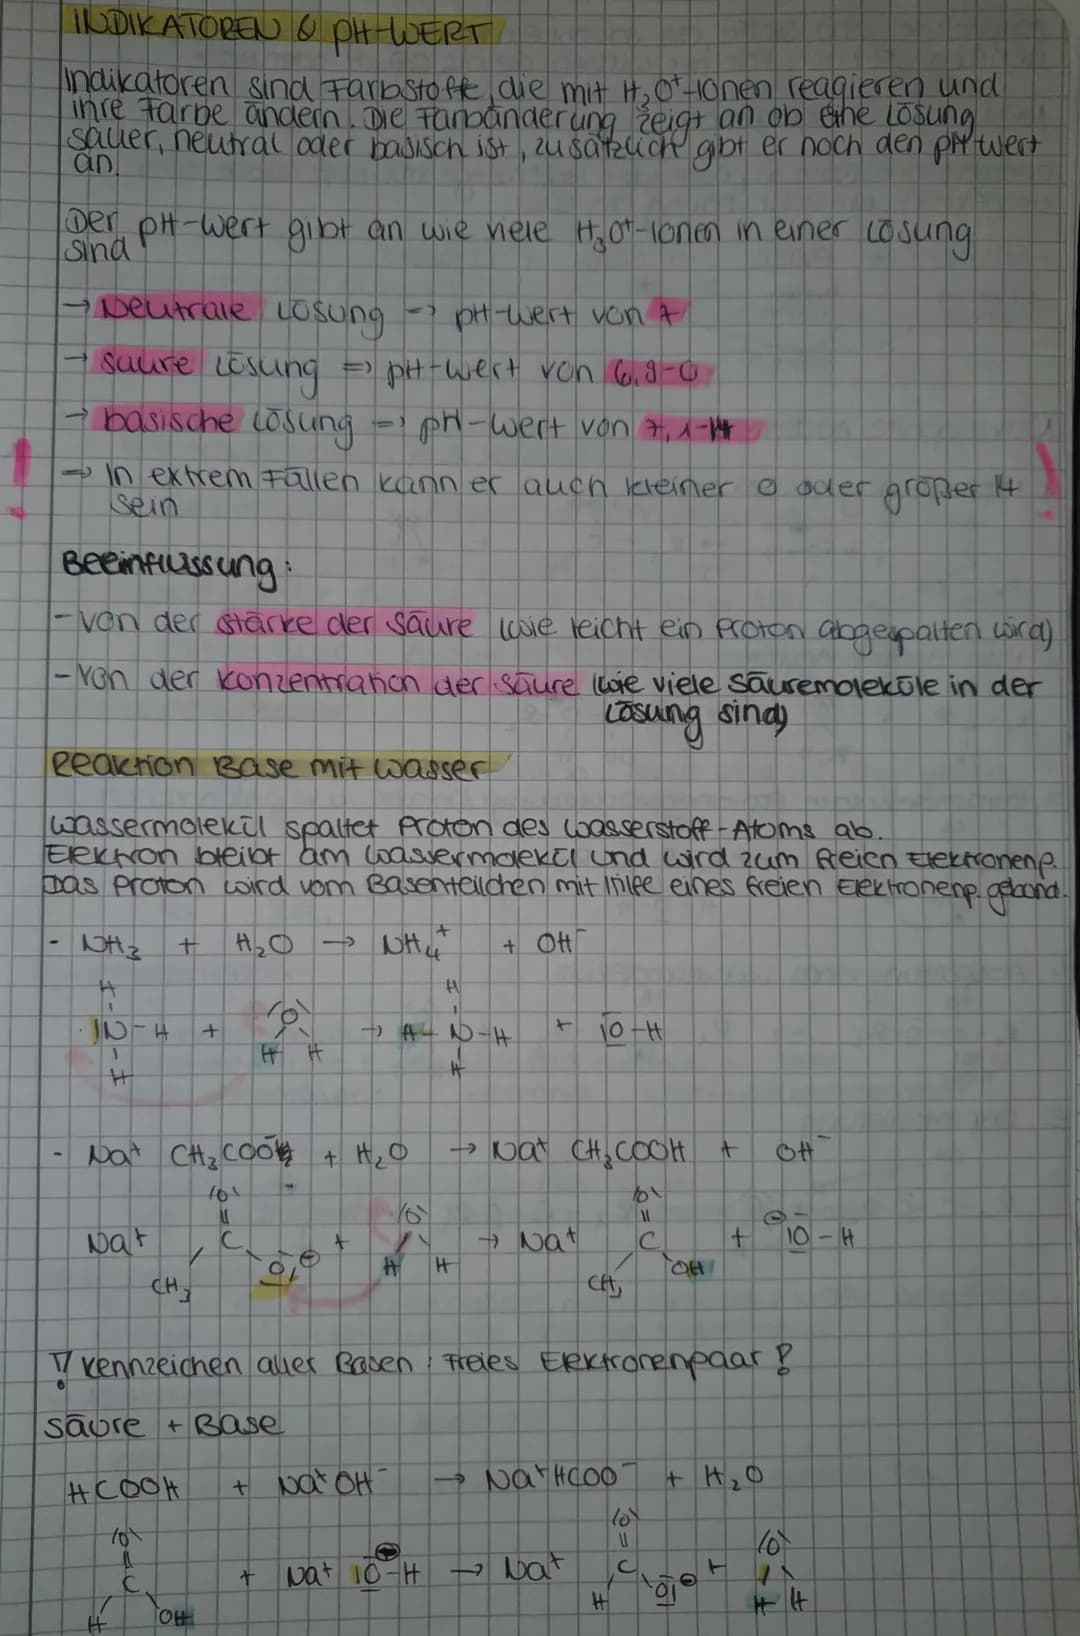 INDIKATOREN & pH-WERT
Indikatoren sind Farbstoffe, die mit H₃O⁺-Ionen reagieren und
ihre Farbe ändern. Die Farbänderung zeigt an ob eine Lösung
sauer, neutral oder basisch ist, zusätzlich gibt er noch den pH-wert
an.
Der pH-Wert gibt an wie viele H₃O⁺-Ionen in einer Lösung
sind
→ Neutrale Lösung => pH-Wert von 7
→ saure Lösung => pH-Wert von 6,9-0
→ basische Lösung => pH-Wert von 7,1-14
! → In extrem Fällen kann er auch kleiner 0 oder größer 14 !
sein
Beeinflussung:
- von der Stärke der Säure (wie leicht ein Proton abgespalten wird)
- Von der Konzentration der Säure (wie viele Säuremoleküle in der
Lösung sind)
Reaktion Base mit Wasser
Wassermolekül spaltet Proton des Wasserstoff-Atoms ab.
Elektron bleibt am Wassermolekül und wird zum freien Elektronenp.
Das Proton wird vom Basenteilchen mit Hilfe eines freien Elektronenp. gebund.
- NH₃ + H₂O → NH₄⁺ + OH⁻
H H
|N-H + |O| → H-N-H + |O-H
H H H H
- Na⁺ CH₃COO⁻ + H₂O → Na⁺ CH₃COOH + OH⁻
|O| |O| |O|
Na⁺ C + → Na⁺ C + ⊖|O-H
CH₃ O|⊖ H H CH₃ OH
!! Kennzeichen aller Basen: Freies Elektronenpaar !
Säure + Base
HCOOH + Na⁺OH⁻ → Na⁺HCOO⁻ + H₂O
|O| |O| |O|
C + Na⁺ |O⊖-H → Na⁺ C +
H OH H O|⊖ H H